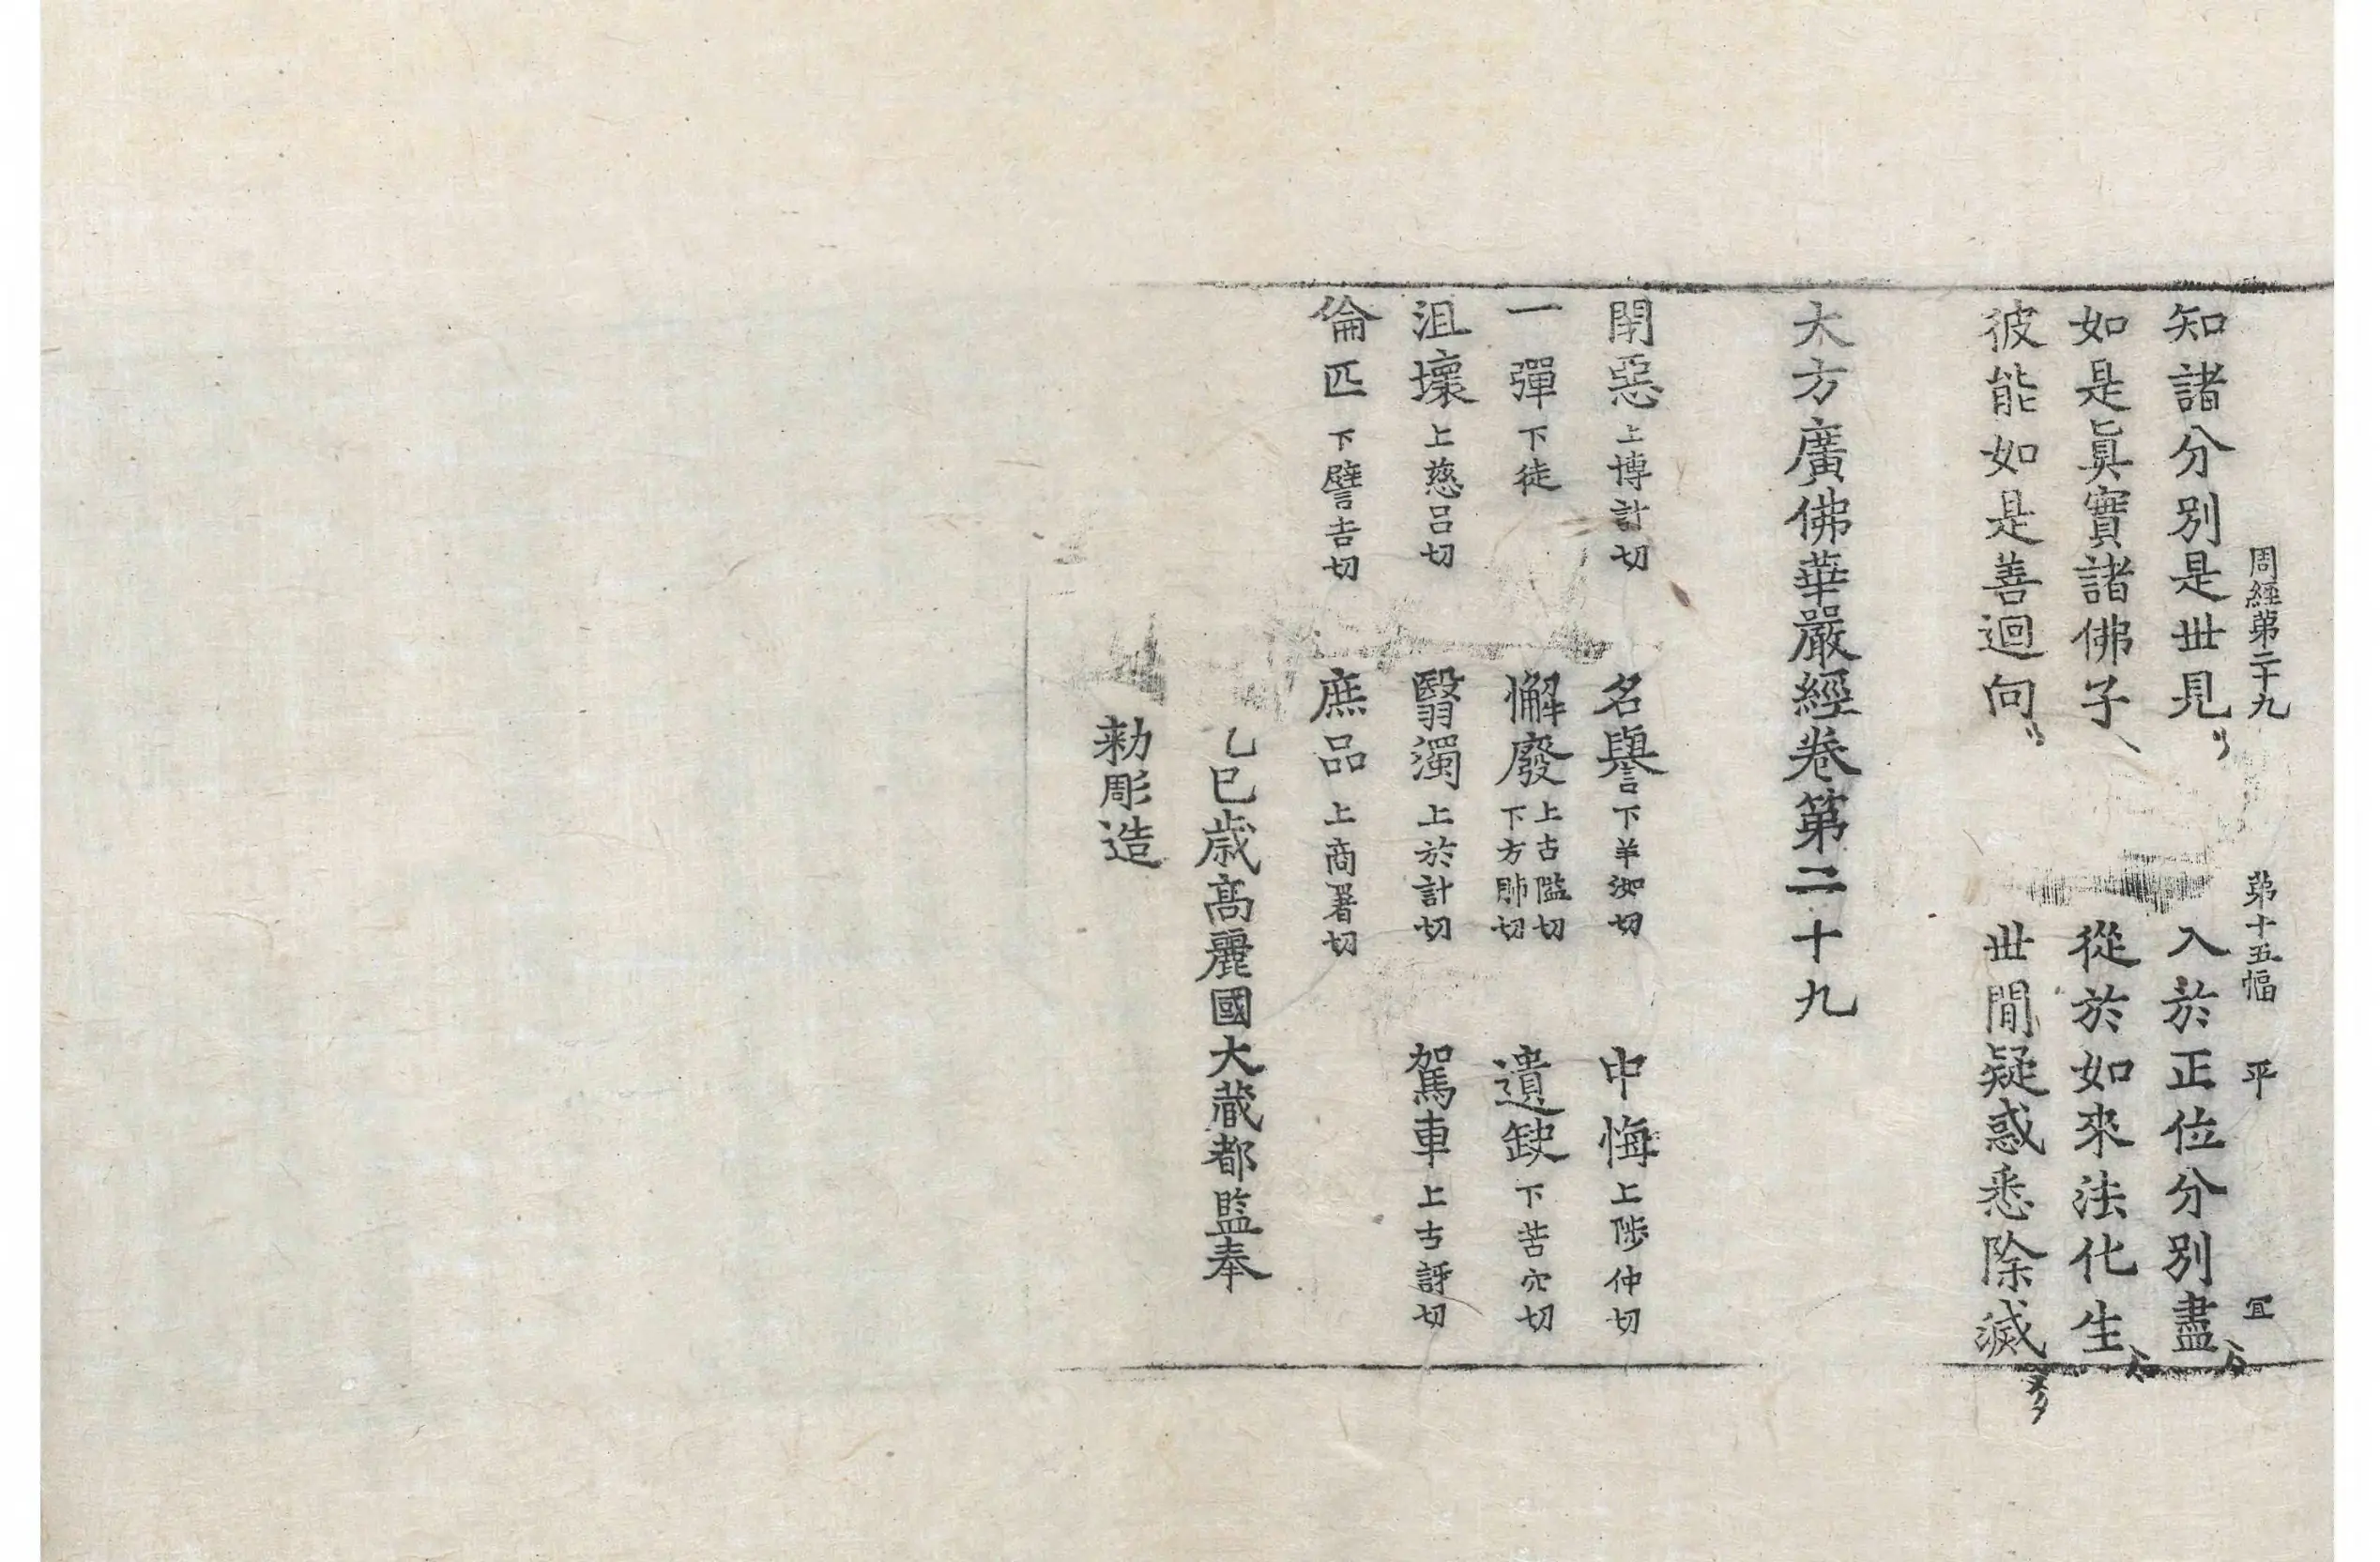 周經第二十九 第十五幅 平 冝
知諸分別是世見 入於正位分別盡
如是眞實諸佛子 從於如來法化生
彼能如是善迴向 世間疑惑悉除滅
大方廣佛華嚴經卷第二十九
閇惡 上博計切 名譽 下羊洳切 中悔 上陟仲切
一彈 下徒 懈廢 上古隘切 下方肺切 遺缺 下苦穴切
沮壞 上慈呂切 翳濁 上於計切 駕車 上古訝切
倫匹 下譬吉切 庶品 上商署切
乙巳歲高麗國大藏都監奉
勅彫造